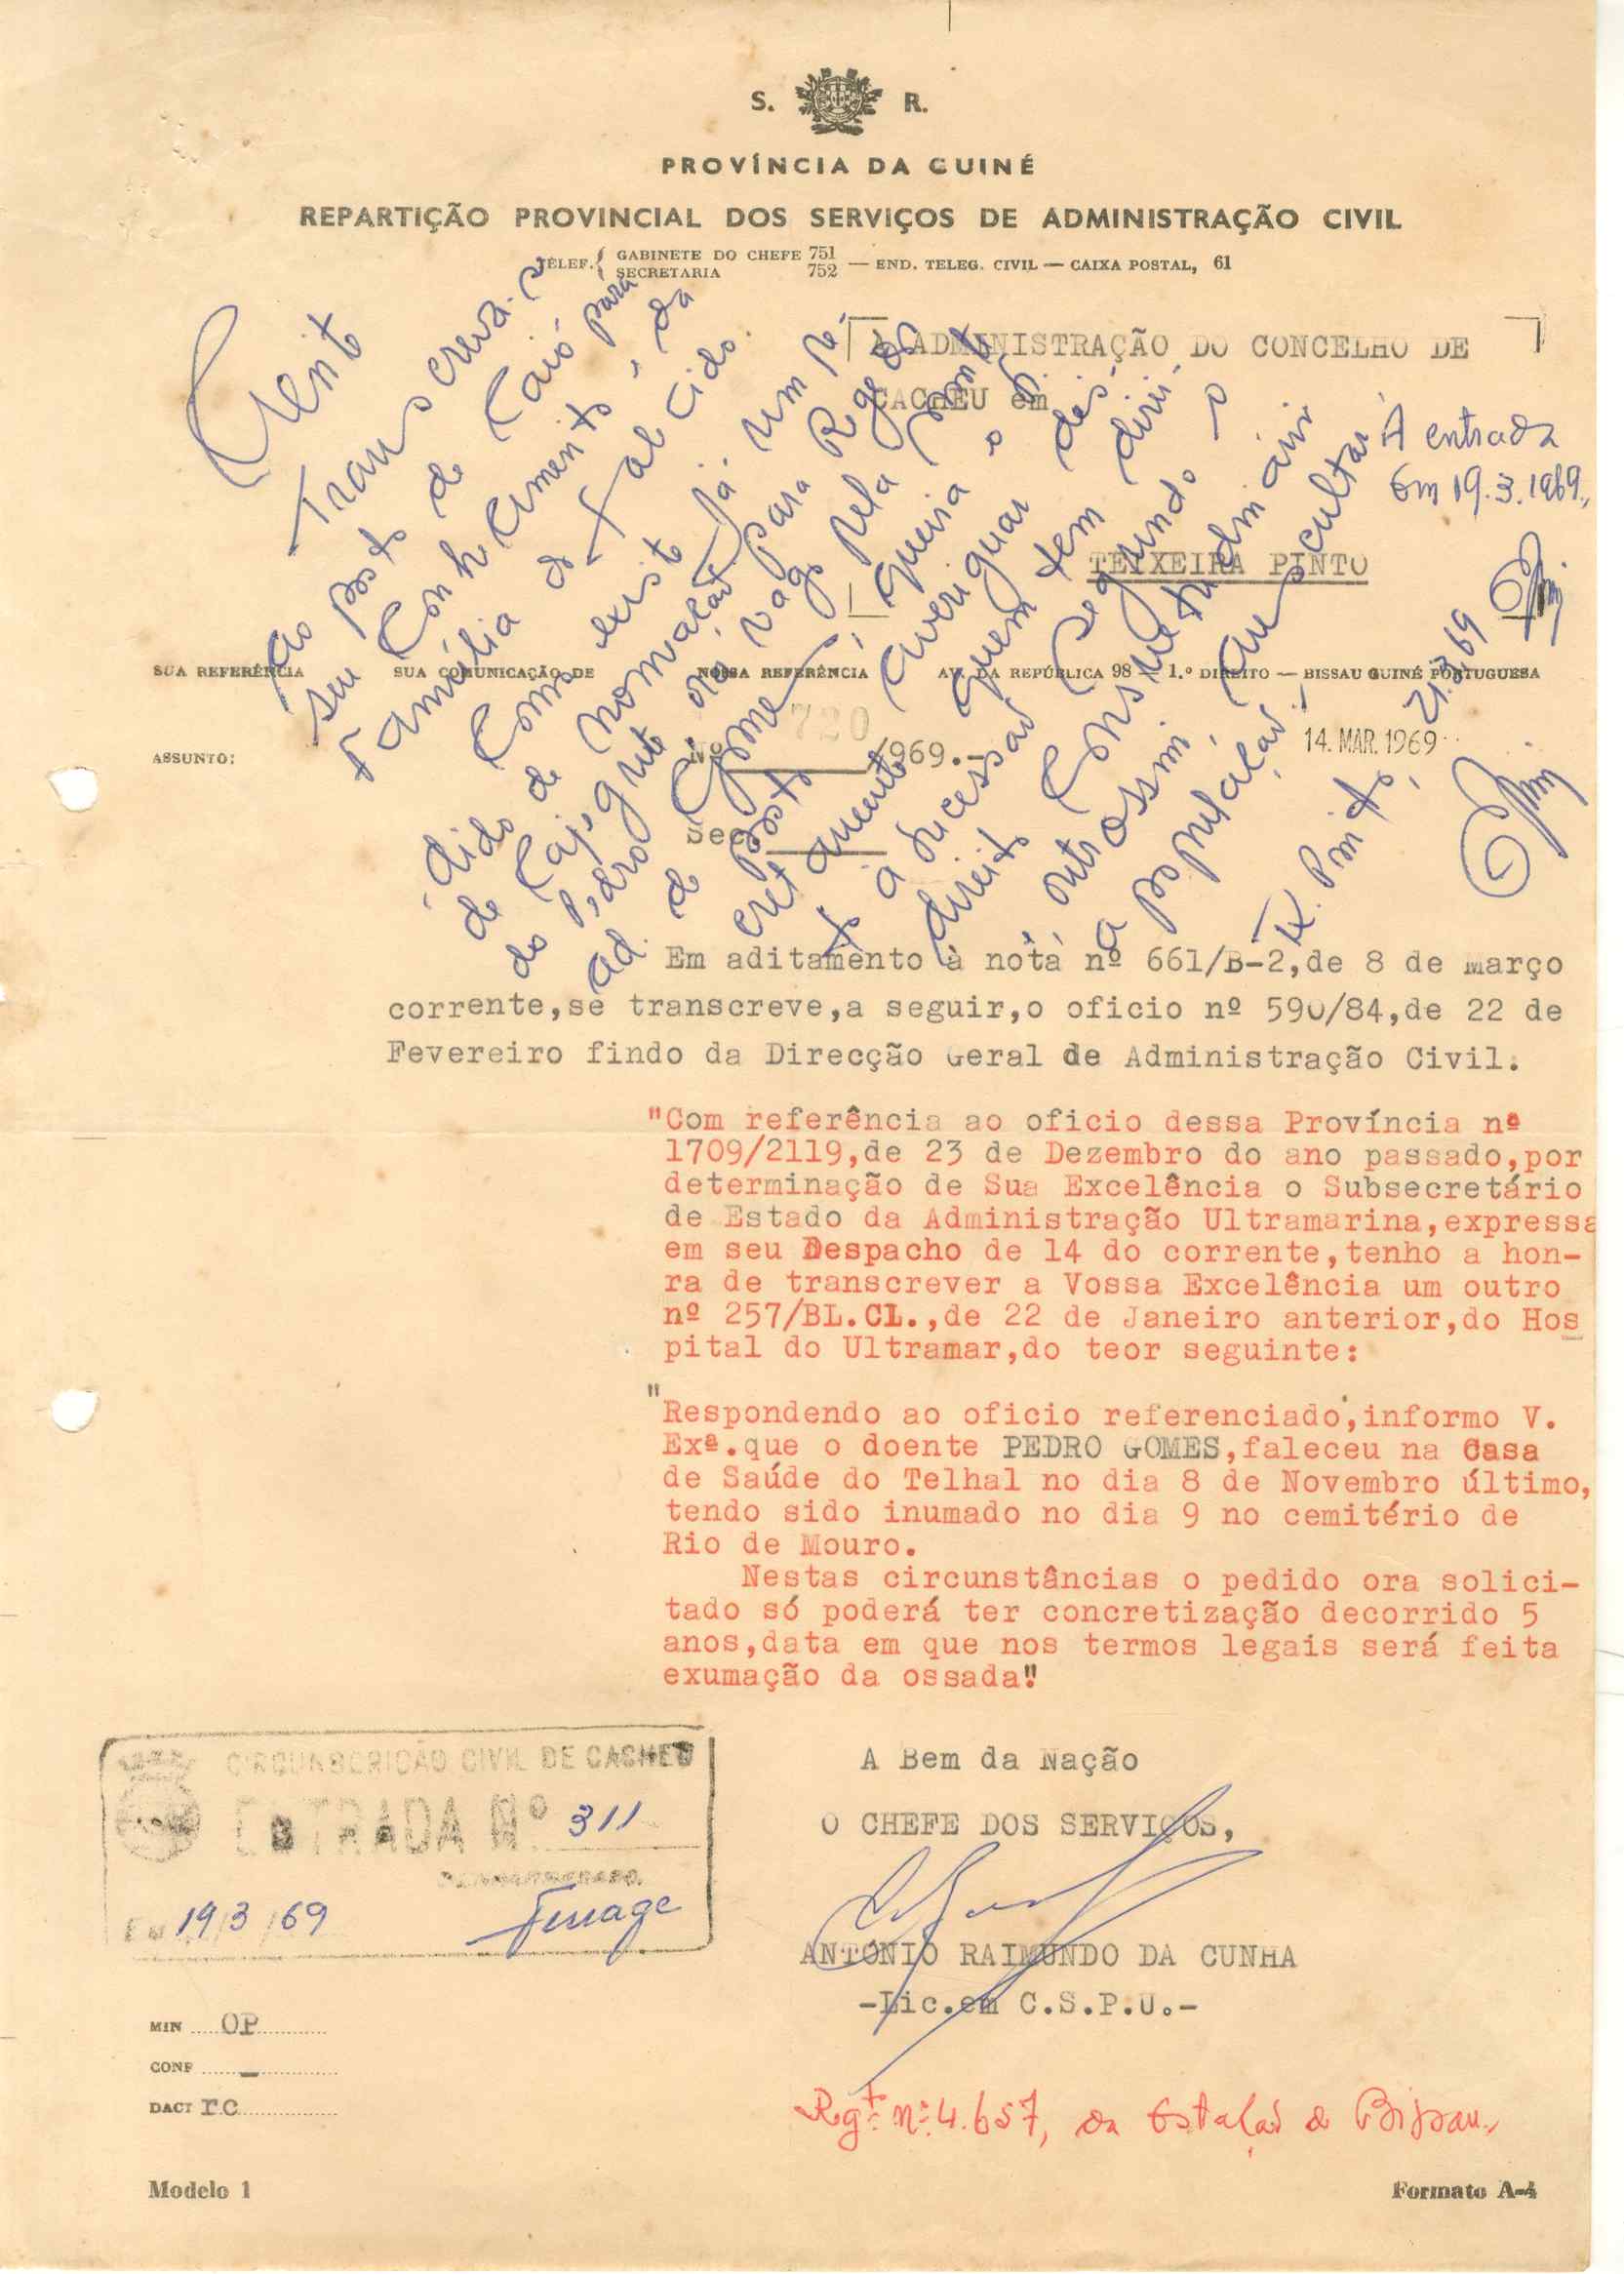 S. R.
PROVÍNCIA DA GUINÉ
REPARTIÇÃO PROVINCIAL DOS SERVIÇOS DE ADMINISTRAÇÃO CIVIL
TELEF. { GABINETE DO CHEFE 751
SECRETARIA 752 — END. TELEG. CIVIL — CAIXA POSTAL, 61
À ADMINISTRAÇÃO DO CONCELHO DE
CACHEU em
TEIXEIRA PINTO
À entrada
Em 19.3.1969.,
Ciente
Transcreva-se
ao posto de Caió para
seu conhecimento e da
família do falecido.
Como existe já um pe-
dido de nomeação para Regedor
de Cajegute ora vago pela morte
do Pedro Gomes, queira o Sr.
ad. de posto averiguar dis-
cretamente quem tem direi-
to à sucessão segundo o
direito consuetudinário
e, outrossim, auscultar
a população.
T. Pinto, 21.3.69
SUA REFERÊNCIA SUA COMUNICAÇÃO DE NOSSA REFERÊNCIA AV. DA REPÚBLICA 98 — 1.º DIREITO — BISSAU GUINÉ PORTUGUESA
ASSUNTO: Nº 720 /969.- 14. MAR. 1969
Sec.
Em aditamento à nota nº 661/B-2,de 8 de Março
corrente,se transcreve,a seguir,o oficio nº 590/84,de 22 de
Fevereiro findo da Direcção Geral de Administração Civil.
"Com referência ao oficio dessa Província nº
1709/2119,de 23 de Dezembro do ano passado,por
determinação de Sua Excelência o Subsecretário
de Estado da Administração Ultramarina,expressa
em seu Despacho de 14 do corrente,tenho a hon-
ra de transcrever a Vossa Excelência um outro
nº 257/BL.CL.,de 22 de Janeiro anterior,do Hos
pital do Ultramar,do teor seguinte:
"Respondendo ao oficio referenciado,informo V.
Exª.que o doente PEDRO GOMES,faleceu na Casa
de Saúde do Telhal no dia 8 de Novembro último,
tendo sido inumado no dia 9 no cemitério de
Rio de Mouro.
Nestas circunstâncias o pedido ora solici-
tado só poderá ter concretização decorrido 5
anos,data em que nos termos legais será feita
exumação da ossada"
A Bem da Nação
O CHEFE DOS SERVIÇOS,
ANTÓNIO RAIMUNDO DA CUNHA
-Lic.em C.S.P.U.-
CIRCUNSCRIÇÃO CIVIL DE CACHEU
ENTRADA Nº 311
Em 19/3/69
MIN OP
CONF -
DACT rc
Rgt.º nº 4.657, da Estação de Bissau,
Modelo 1
Formato A-4